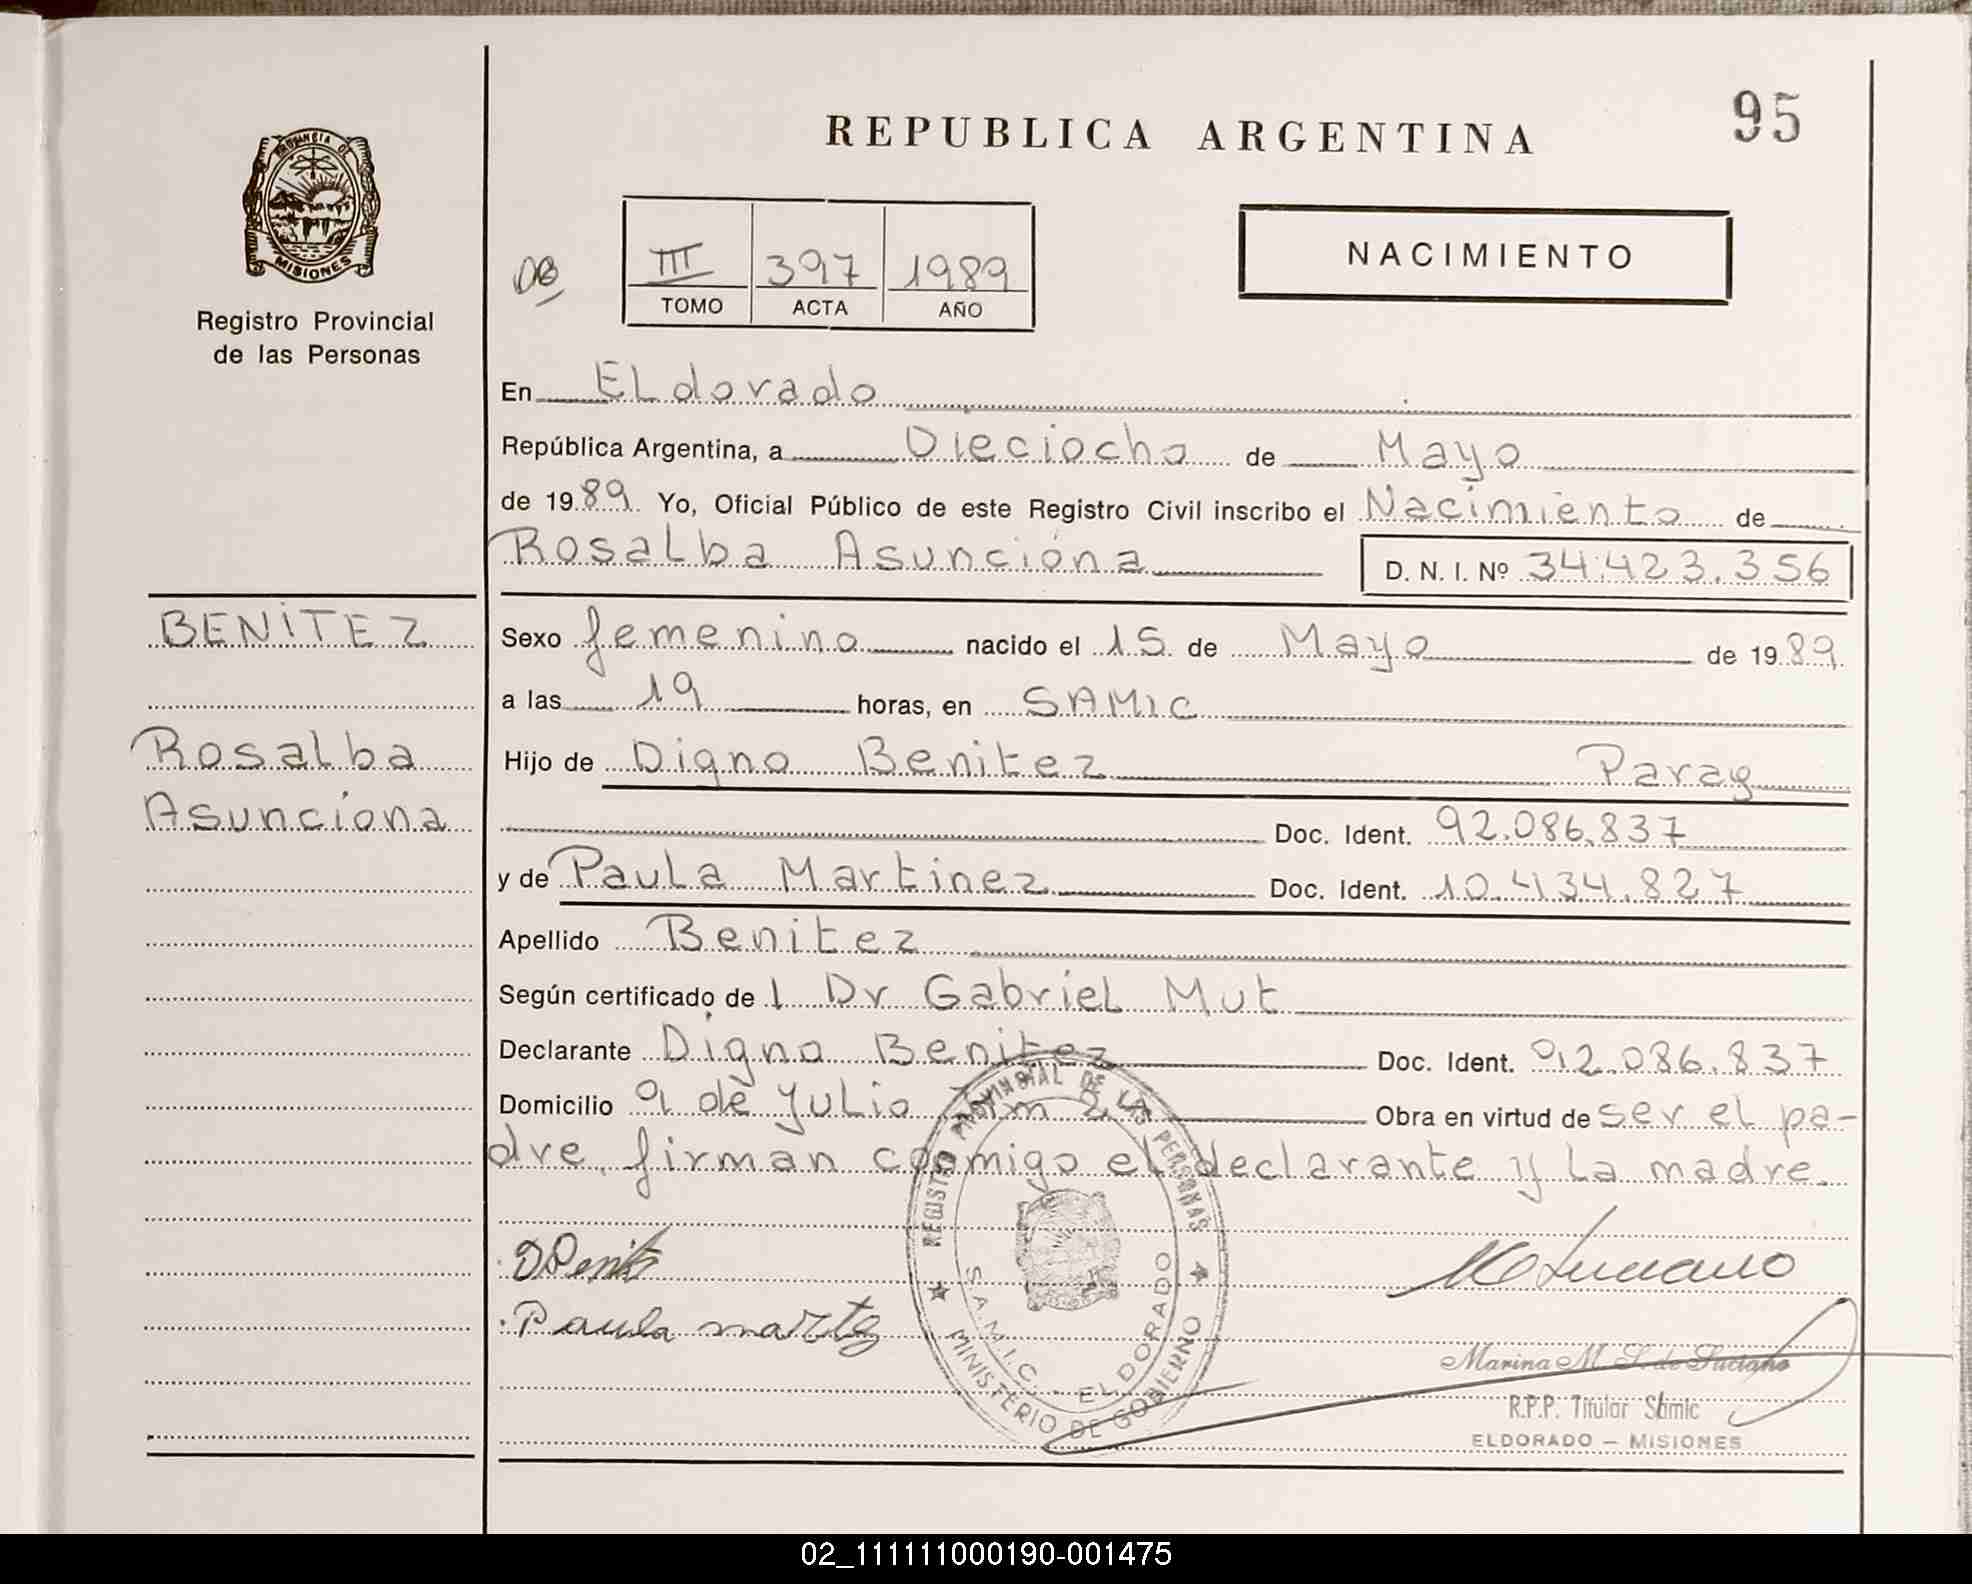 95
REPUBLICA ARGENTINA
PROVINCIA DE
MISIONES
Registro Provincial
de las Personas
NACIMIENTO
III 397 1989
TOMO ACTA AÑO
En ELdorado
República Argentina, a Dieciocho de Mayo
de 1989. Yo, Oficial Público de este Registro Civil inscribo el Nacimiento de
Rosalba Asunciona D. N. I. Nº 34.423.356
BENITEZ
Rosalba
Asunciona
Sexo femenino nacido el 15 de Mayo de 1989.
a las 19 horas, en SAMIC
Hijo de Digno Benitez Parag
Doc. Ident. 92.086.837
y de Paula Martinez Doc. Ident. 10.434.827
Apellido Benitez
Según certificado de l Dr Gabriel Mut
Declarante Digno Benitez Doc. Ident. 92.086.837
Domicilio 9 de Julio Km 2 Obra en virtud de ser el pa-
dre. firman conmigo el declarante y la madre.
REGISTRO PROVINCIAL DE LAS PERSONAS
S.A.M.I.C. - ELDORADO
MINISTERIO DE GOBIERNO
Paula martez
Marina M. S. de Luciano
R.P.P. Titular Samic
ELDORADO – MISIONES
02_111111000190-001475